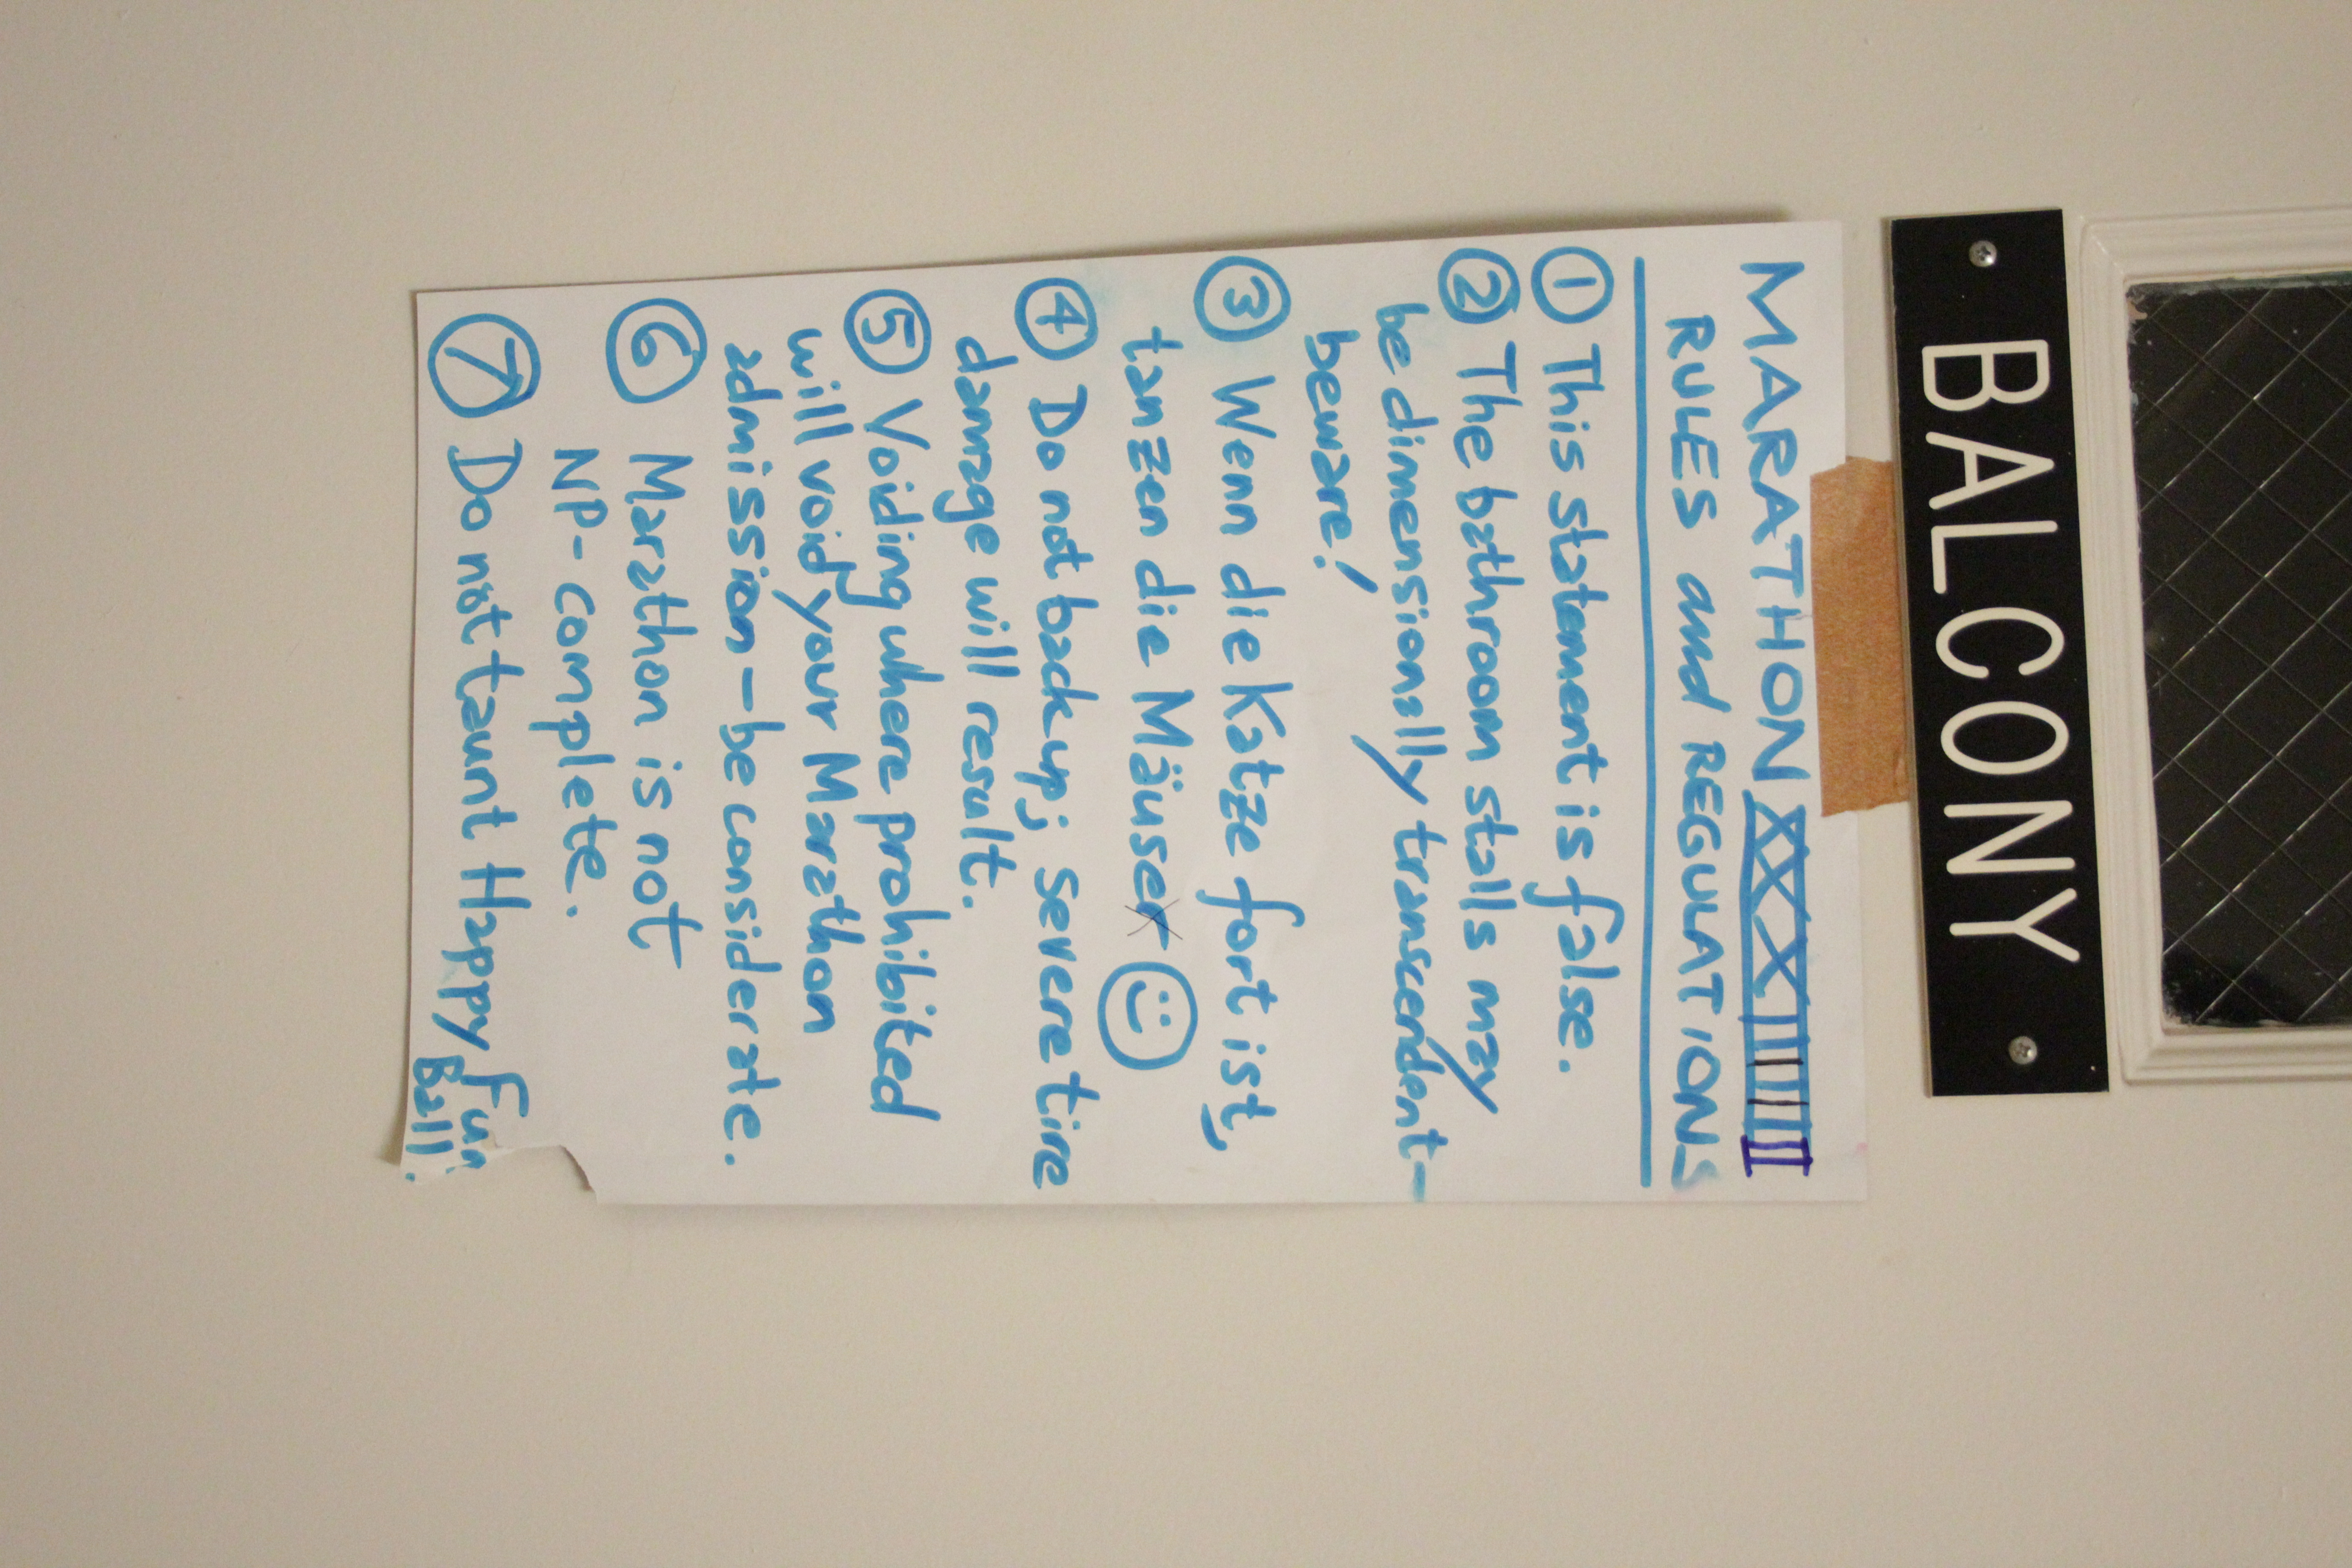 BALCONY
MARATHON
RULES and REGULATIONS
① This statement is false.
② The bathroom stalls may
be dimensionally transcendent—
beware!
③ Wenn die Katze fort ist,
tanzen die Mäuse ☺
④ Do not back up; severe tire
damage will result.
⑤ Voiding where prohibited
will void your Marathon
admission — be considerate.
⑥ Marathon is not
NP-complete.
⑦ Do not taunt Happy Fun
Ball.